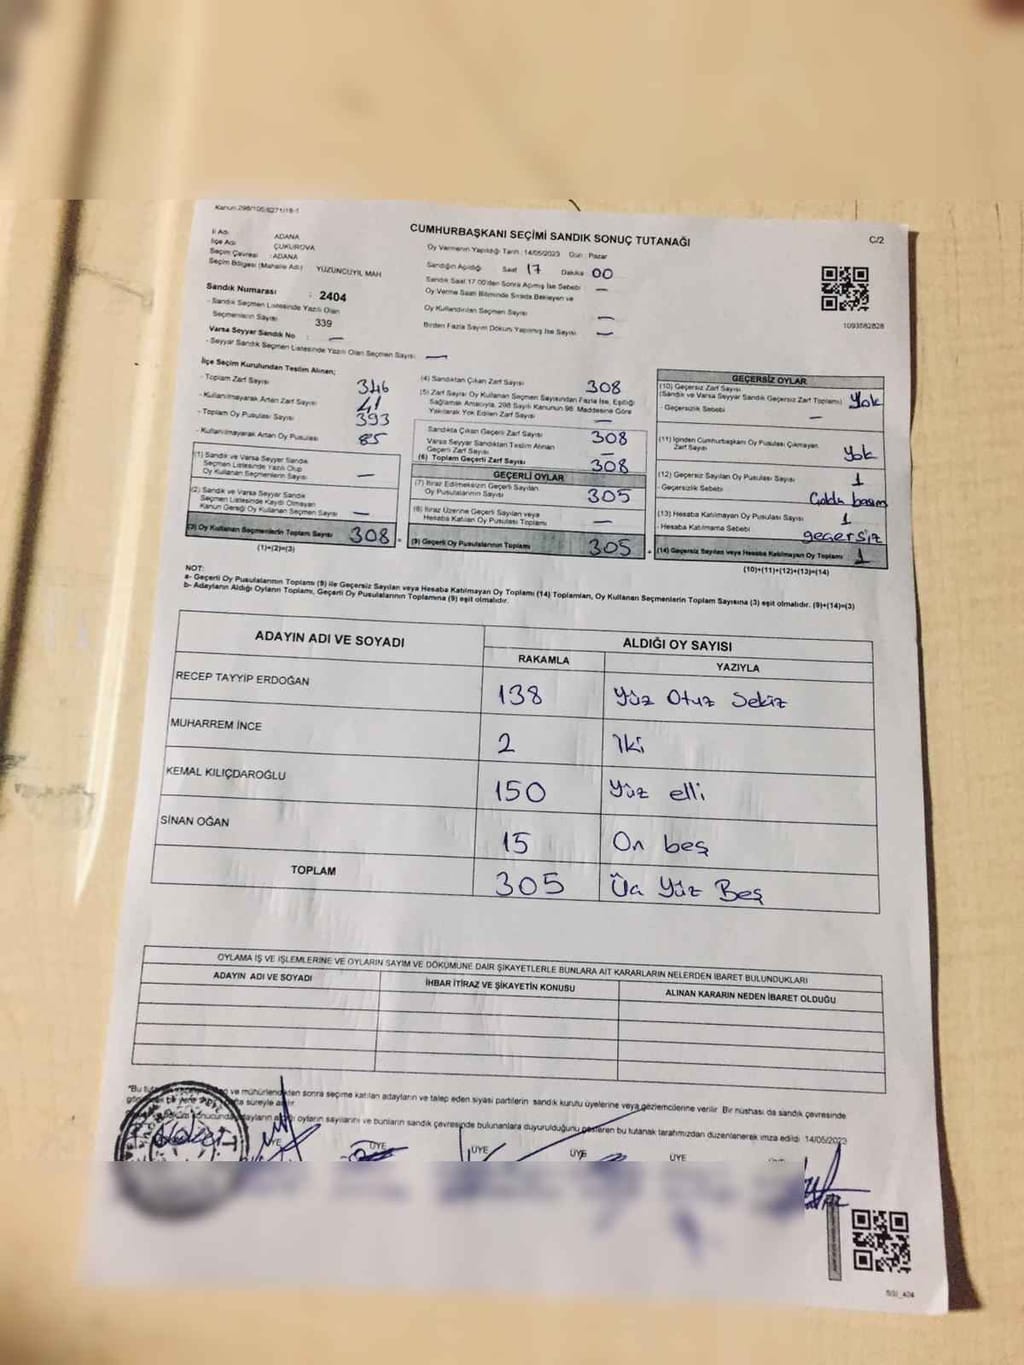 Kanun:298/105,6271/18-1
CUMHURBAŞKANI SEÇİMİ SANDIK SONUÇ TUTANAĞI
C/2
İl Adı : ADANA
İlçe Adı : ÇUKUROVA
Seçim Çevresi : ADANA
Seçim Bölgesi (Mahalle Adı) : YÜZÜNCÜYIL MAH
Sandık Numarası : 2404
- Sandık Seçmen Listesinde Yazılı Olan
Seçmenlerin Sayısı : 339
Varsa Seyyar Sandık No : —
- Seyyar Sandık Seçmen Listesinde Yazılı Olan Seçmen Sayısı : —
Oy Vermenin Yapıldığı Tarih : 14/05/2023 Gün : Pazar
Sandığın Açıldığı Saat 17 Dakika 00
Sandık Saat 17.00'den Sonra Açılmış İse Sebebi —
Oy Verme Saati Bitiminde Sırada Bekleyen ve
Oy Kullandırılan Seçmen Sayısı —
Birden Fazla Sayım Döküm Yapılmış İse Sayısı —
1093582828
İlçe Seçim Kurulundan Teslim Alınan;
- Toplam Zarf Sayısı 346
- Kullanılmayarak Artan Zarf Sayısı 41
- Toplam Oy Pusulası Sayısı 393
- Kullanılmayarak Artan Oy Pusulası 85
(1) Sandık ve Varsa Seyyar Sandık
Seçmen Listesinde Yazılı Olup
Oy Kullanan Seçmenlerin Sayısı —
(2) Sandık ve Varsa Seyyar Sandık
Seçmen Listesinde Kaydı Olmayan
Kanun Gereği Oy Kullanan Seçmen Sayısı —
(3) Oy Kullanan Seçmenlerin Toplam Sayısı 308
(1)+(2)=(3)
(4) Sandıktan Çıkan Zarf Sayısı 308
(5) Zarf Sayısı Oy Kullanan Seçmen Sayısından Fazla İse, Eşitliği
Sağlamak Amacıyla, 298 Sayılı Kanunun 98. Maddesine Göre
Yakılarak Yok Edilen Zarf Sayısı —
Sandıkta Çıkan Geçerli Zarf Sayısı 308
Varsa Seyyar Sandıktan Teslim Alınan
Geçerli Zarf Sayısı —
(6) Toplam Geçerli Zarf Sayısı 308
GEÇERLİ OYLAR
(7) İtiraz Edilmeksizin Geçerli Sayılan
Oy Pusulalarının Sayısı 305
(8) İtiraz Üzerine Geçerli Sayılan veya
Hesaba Katılan Oy Pusulası Toplamı —
(9) Geçerli Oy Pusulalarının Toplamı 305
GEÇERSİZ OYLAR
(10) Geçersiz Zarf Sayısı
(Sandık ve Varsa Seyyar Sandık Geçersiz Zarf Toplamı) Yok
- Geçersizlik Sebebi —
(11) İçinden Cumhurbaşkanı Oy Pusulası Çıkmayan
Zarf Sayısı Yok
(12) Geçersiz Sayılan Oy Pusulası Sayısı 1
- Geçersizlik Sebebi
(13) Hesaba Katılmayan Oy Pusulası Sayısı 1
- Hesaba Katılmama Sebebi geçersiz
(14) Geçersiz Sayılan veya Hesaba Katılmayan Oy Toplamı 1
(10)+(11)+(12)+(13)=(14)
NOT:
a- Geçerli Oy Pusulalarının Toplamı (9) ile Geçersiz Sayılan veya Hesaba Katılmayan Oy Toplamı (14) Toplamları, Oy Kullanan Seçmenlerin Toplam Sayısına (3) eşit olmalıdır. (9)+(14)=(3)
b- Adayların Aldığı Oyların Toplamı, Geçerli Oy Pusulalarının Toplamına (9) eşit olmalıdır.
ADAYIN ADI VE SOYADI
ALDIĞI OY SAYISI
RAKAMLA YAZIYLA
RECEP TAYYİP ERDOĞAN 138 Yüz Otuz Sekiz
MUHARREM İNCE 2 İki
KEMAL KILIÇDAROĞLU 150 Yüz elli
SİNAN OĞAN 15 On beş
TOPLAM 305 Üç Yüz Beş
OYLAMA İŞ VE İŞLEMLERİNE VE OYLARIN SAYIM VE DÖKÜMÜNE DAİR ŞİKAYETLERLE BUNLARA AİT KARARLARIN NELERDEN İBARET BULUNDUKLARI
ADAYIN ADI VE SOYADI İHBAR İTİRAZ VE ŞİKAYETİN KONUSU ALINAN KARARIN NEDEN İBARET OLDUĞU
*Bu ve mühürlendikten sonra seçime katılan adayların ve talep eden siyasi partilerin sandık kurulu üyelerine veya gözlemcilerine verilir. Bir nüshası da sandık çevresinde
süreyle asılır
sonucunda adayların aldığı oyların sayılarını ve bunların sandık çevresinde bulunanlara duyurulduğunu gösteren bu tutanak tarafımızdan düzenlenerek imza edildi. 14/05/2023
ÜYE ÜYE ÜYE ÜYE ÜYE